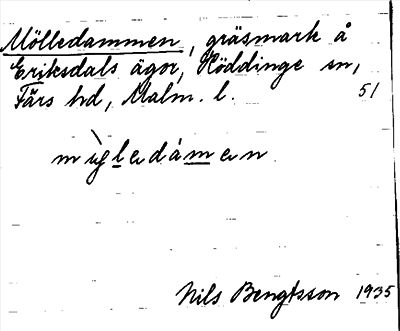 Mölledammen, gräsmark å
Eriksdals ägor, Röddinge sn,
Färs hd, Malm. l. 51
Nils Bengtsson 1935